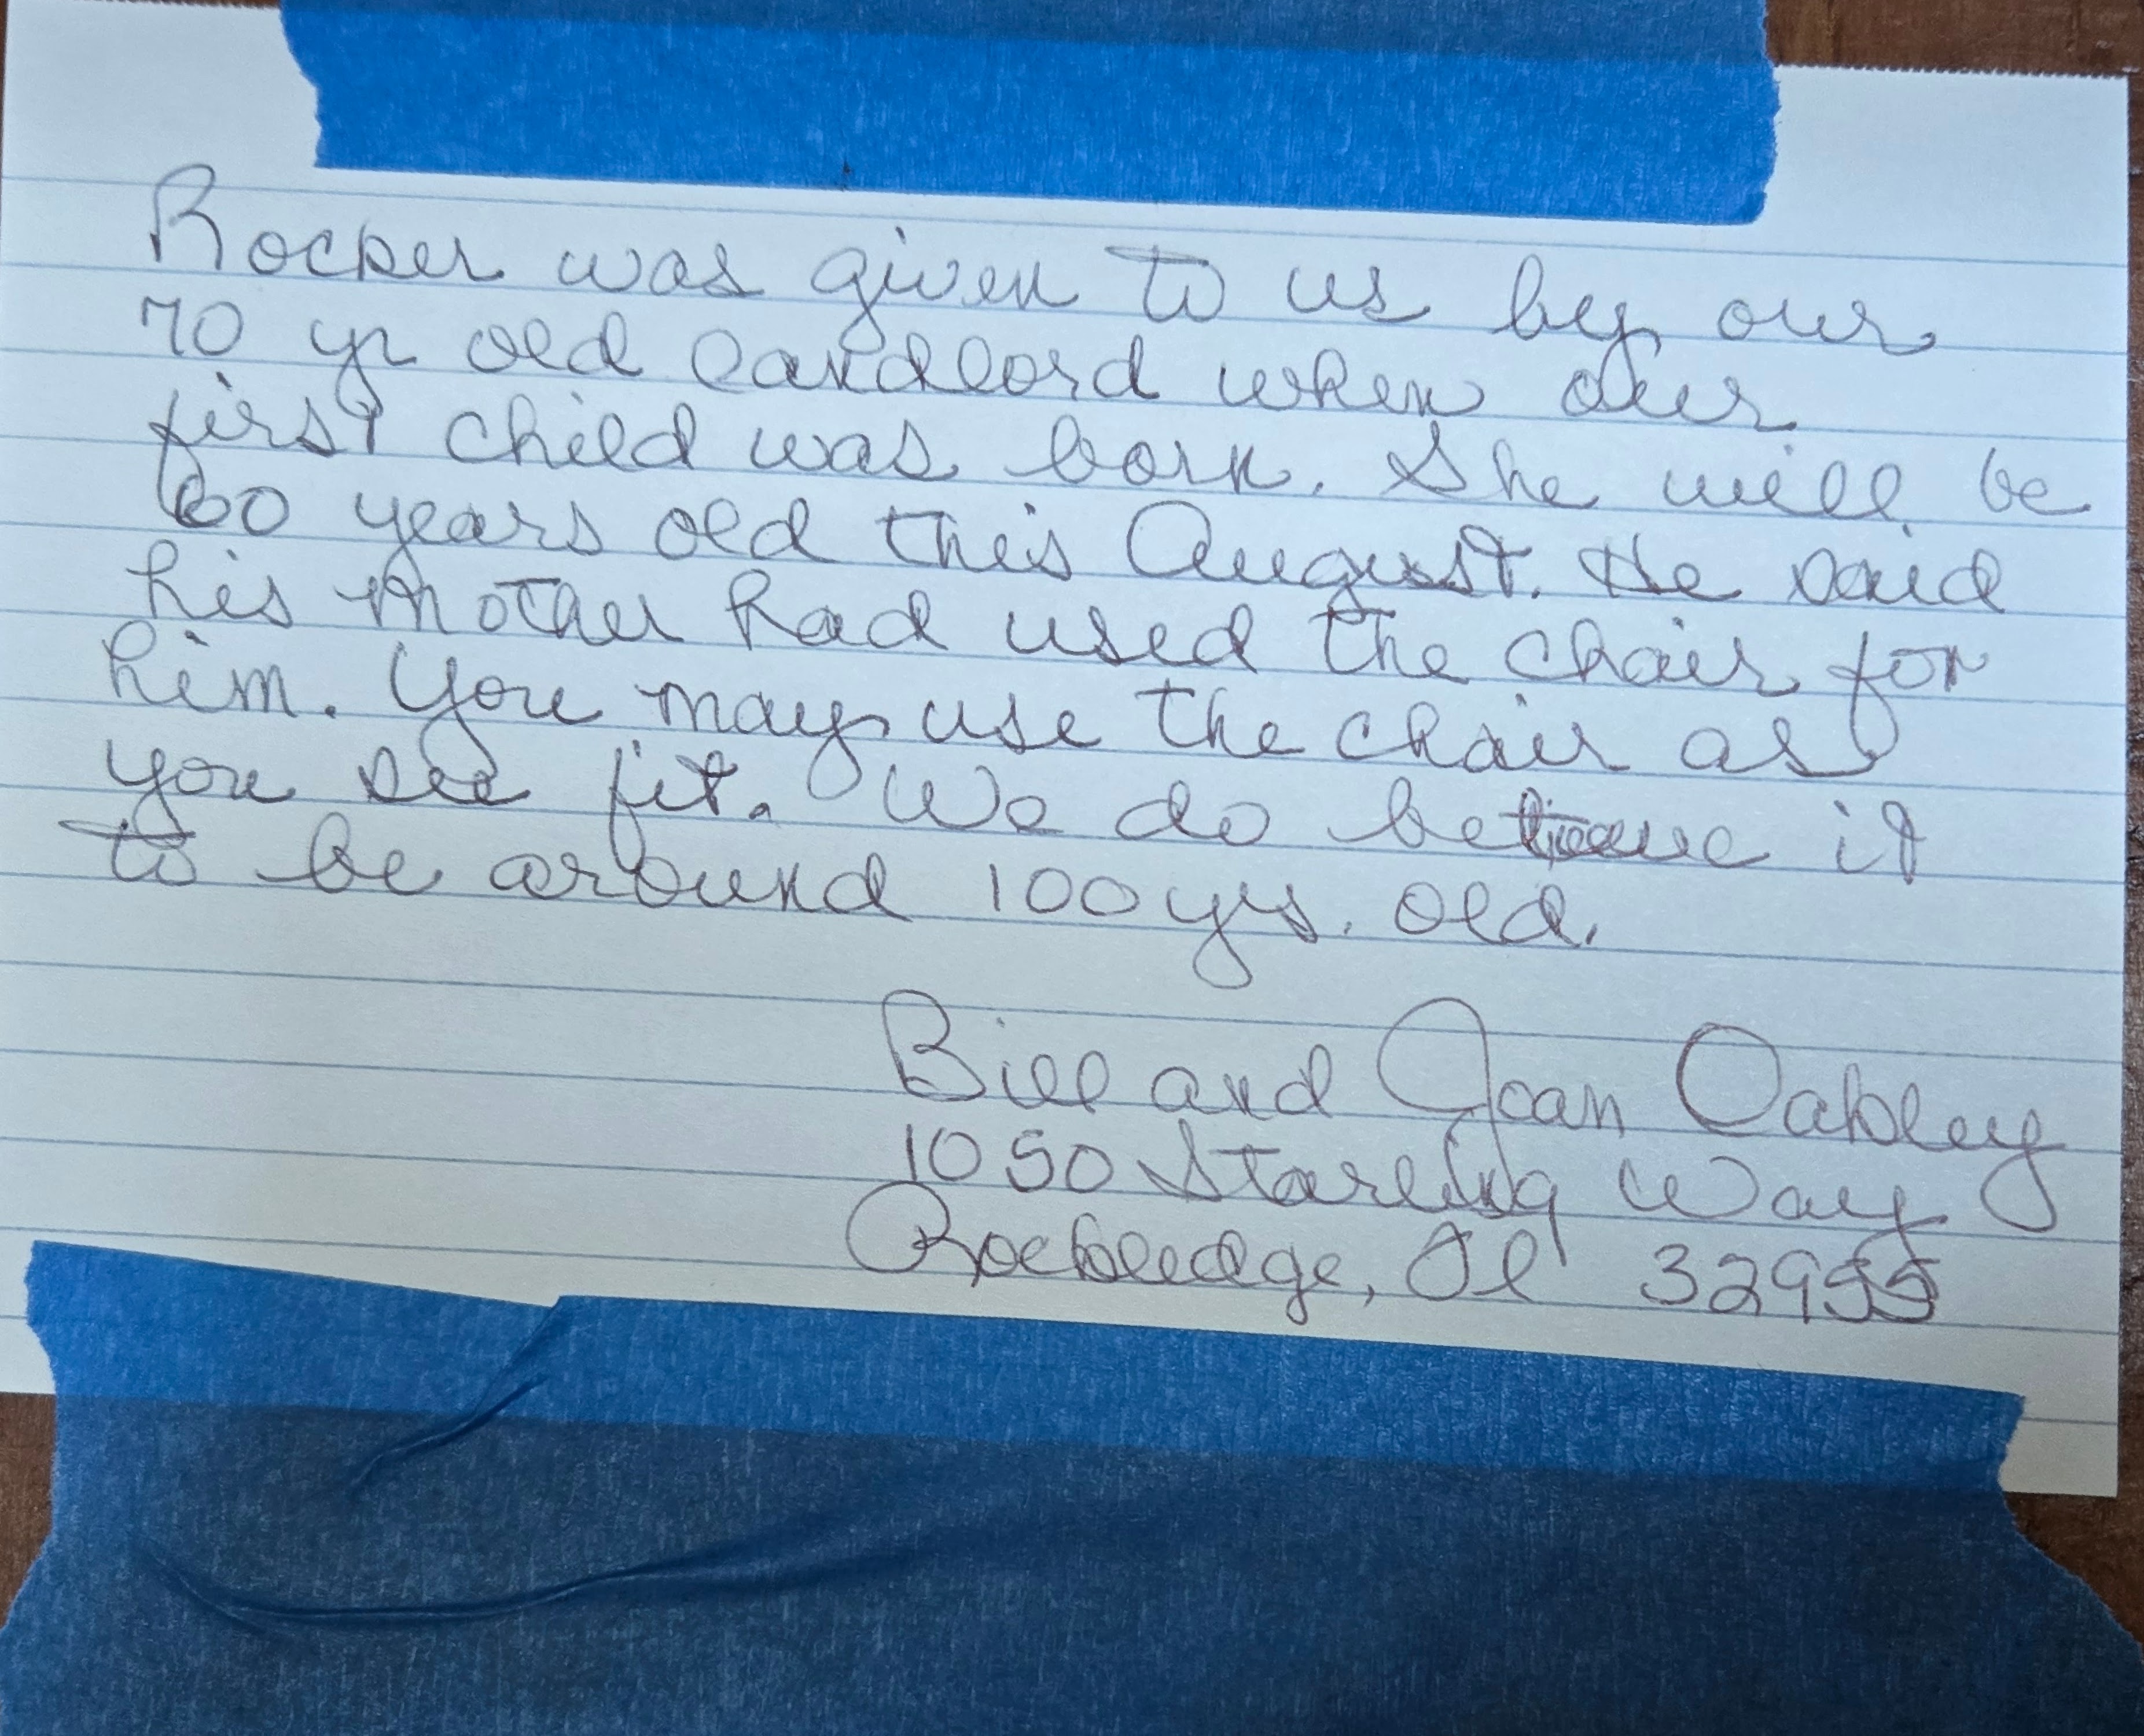 Rocker was given to us by our
70 yr old landlord when our
first child was born. She will be
60 years old this August. He said
his mother had used the chair for
him. You may use the chair as
you see fit. We do believe it
to be around 100 yrs. old.
Bill and Joan Oakley
1050 Starling Way
Rockledge, Fl 32955